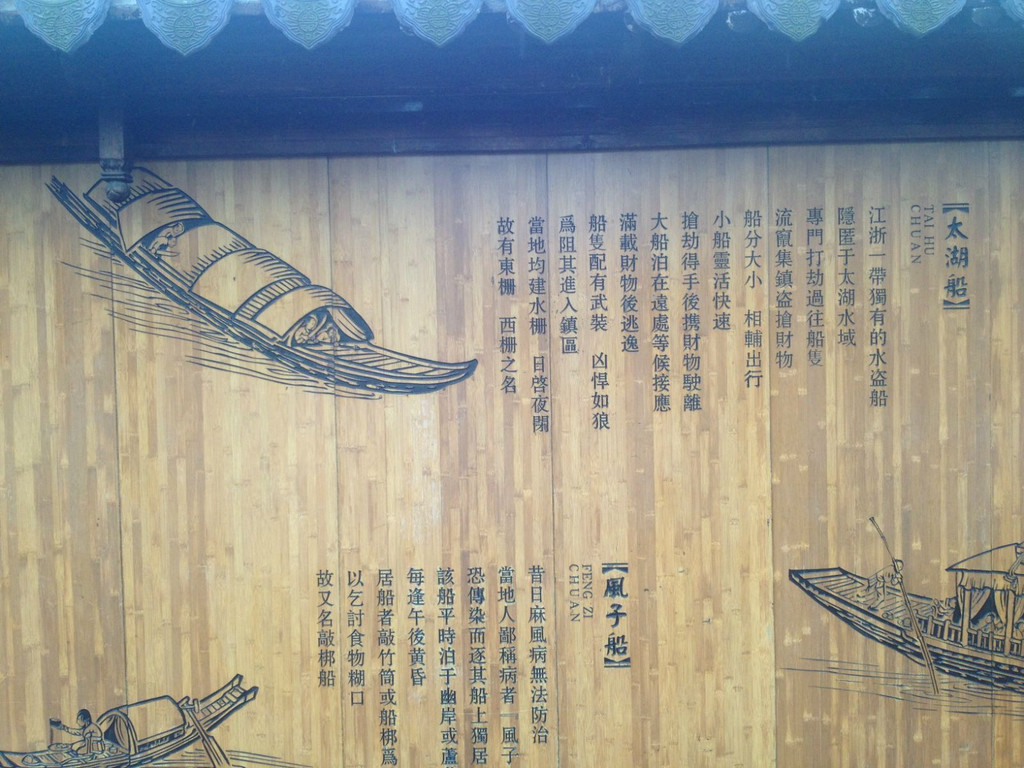 【太湖船】
TAI HU
CHUAN
江浙一帶獨有的水盗船
隱匿于太湖水域
專門打劫過往船隻
流竄集鎮盗搶財物
船分大小 相輔出行
小船靈活快速
搶劫得手後携財物駛離
大船泊在遠處等候接應
滿載財物後逃逸
船隻配有武裝 凶悍如狼
爲阻其進入鎮區
當地均建水柵 日啓夜閉
故有東柵 西柵之名
【風子船】
FENG ZI
CHUAN
昔日麻風病無法防治
當地人鄙稱病者 風子
恐傳染而逐其船上獨居
該船平時泊于幽岸或蘆
每逢午後黄昏
居船者敲竹筒或船梆爲
以乞討食物糊口
故又名敲梆船